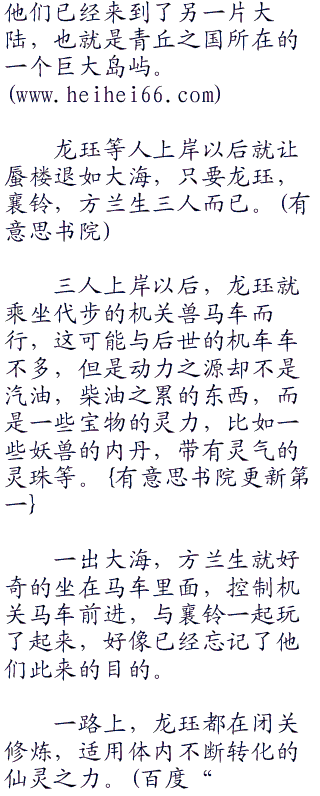 他们已经来到了另一片大
陆，也就是青丘之国所在的
一个巨大岛屿。
(www.heihei66.com)
龙珏等人上岸以后就让
蜃楼退如大海，只要龙珏，
襄铃，方兰生三人而已。(有
意思书院)
三人上岸以后，龙珏就
乘坐代步的机关兽马车而
行，这可能与后世的机车车
不多，但是动力之源却不是
汽油，柴油之累的东西，而
是一些宝物的灵力，比如一
些妖兽的内丹，带有灵气的
灵珠等。{有意思书院更新第
一}
一出大海，方兰生就好
奇的坐在马车里面，控制机
关马车前进，与襄铃一起玩
了起来，好像已经忘记了他
们此来的目的。
一路上，龙珏都在闭关
修炼，适用体内不断转化的
仙灵之力。(百度“